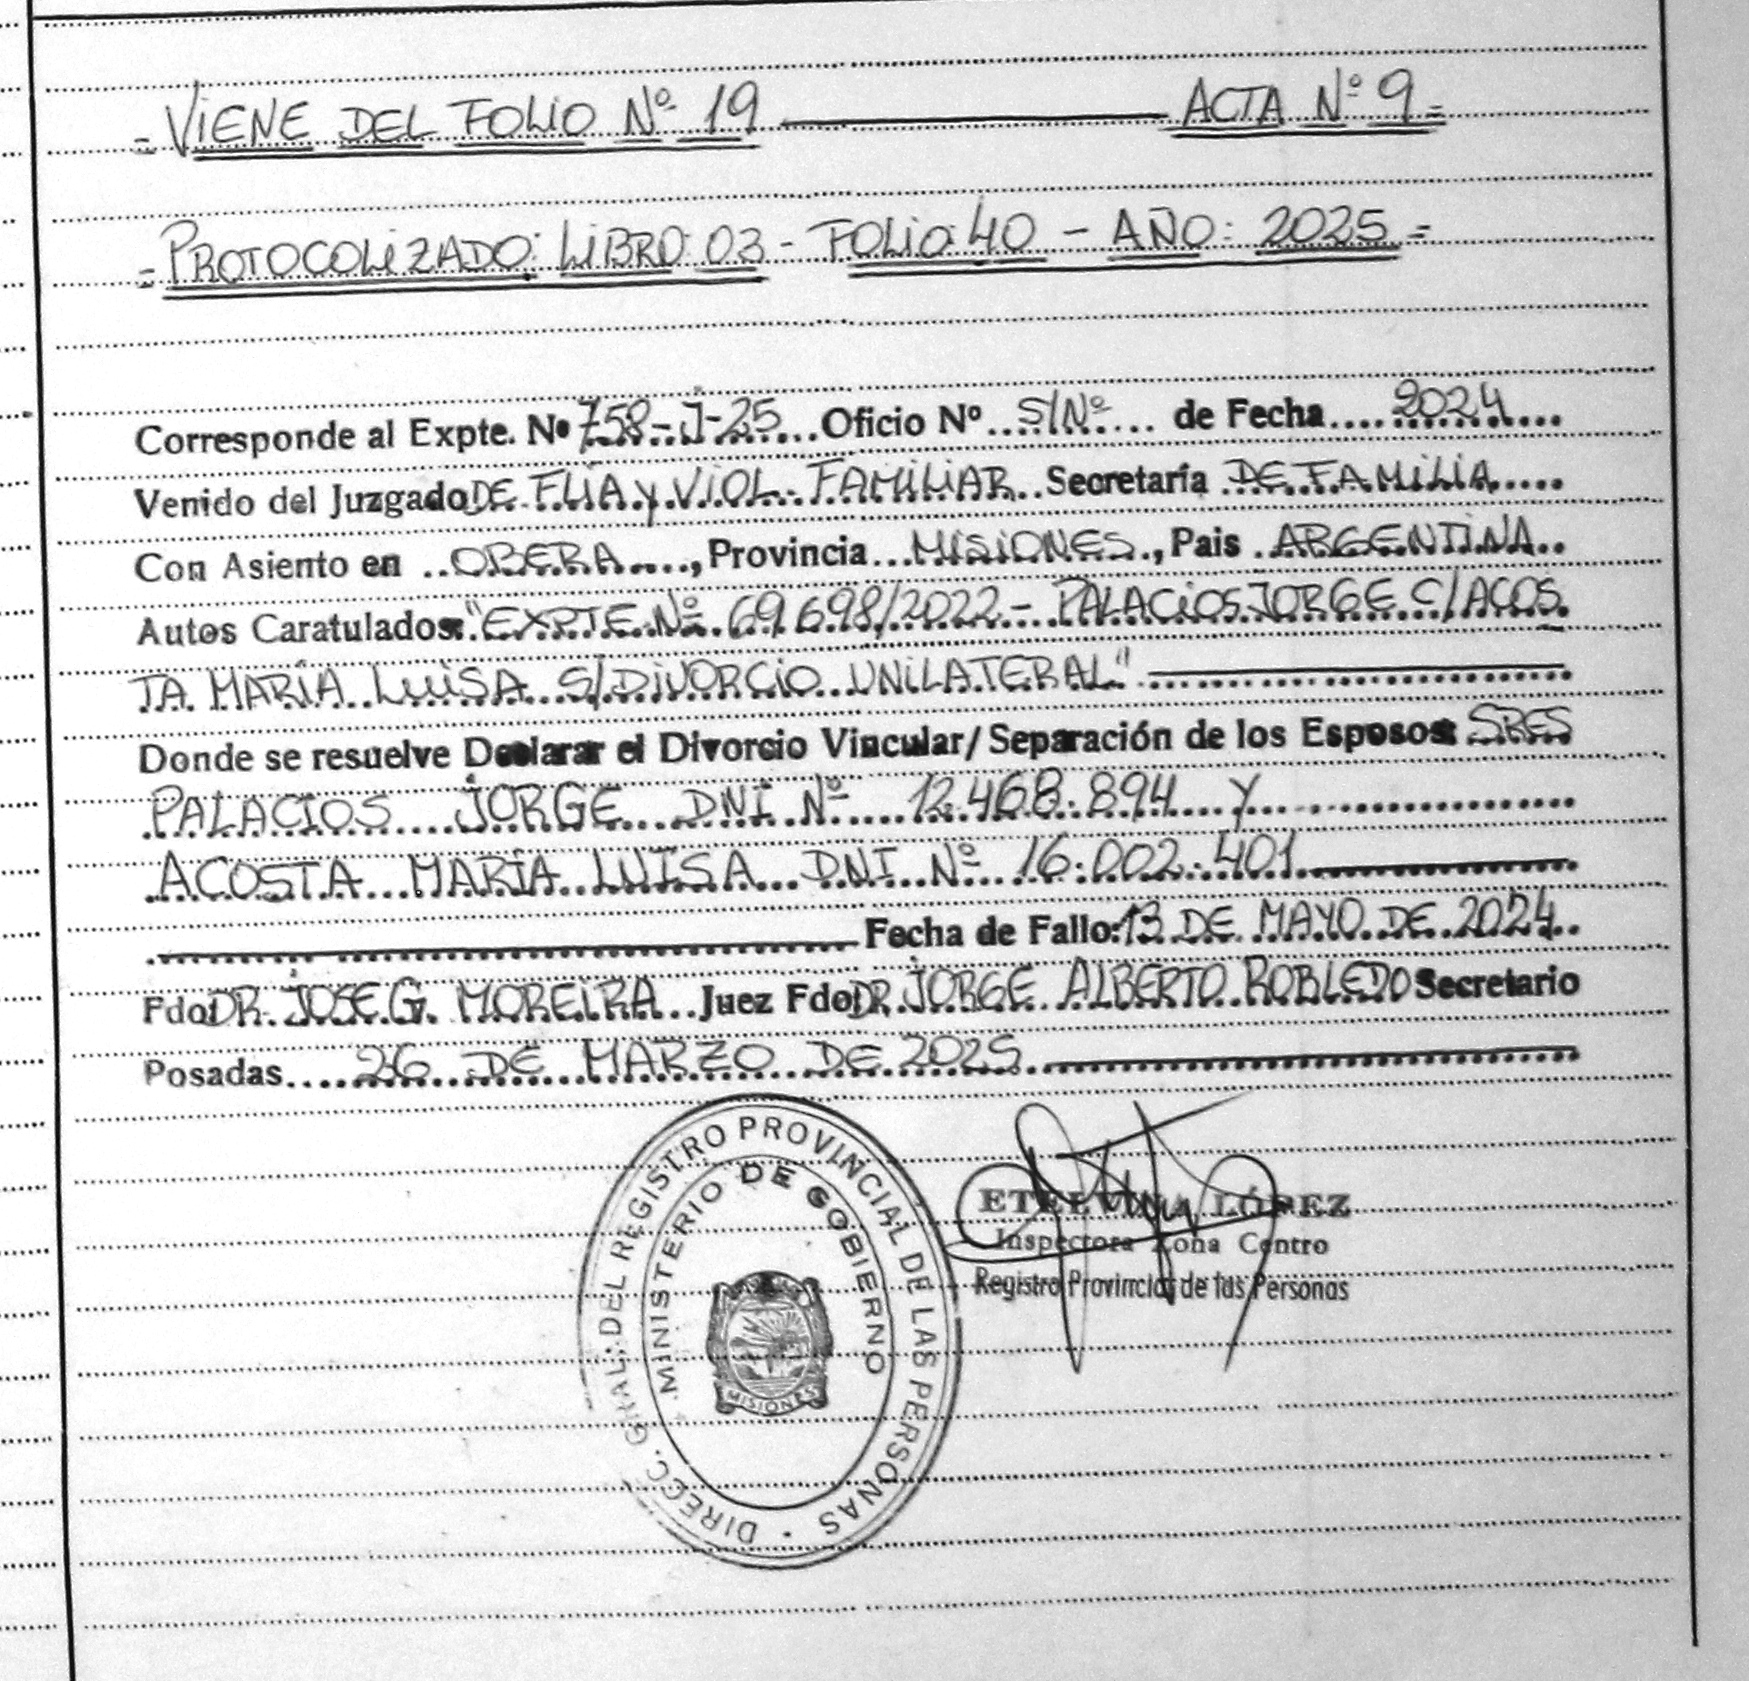 = VIENE DEL FOLIO Nº 19 ACTA Nº 9 =
= PROTOCOLIZADO: LIBRO: 03 - FOLIO: 40 - AÑO: 2025 =
Corresponde al Expte. Nº 758-J-25 Oficio Nº S/Nº de Fecha 2024
Venido del Juzgado DE FLIA y VIOL. FAMILIAR Secretaría DE FAMILIA
Con Asiento en OBERA, Provincia MISIONES, Pais ARGENTINA
Autos Caratulados: "EXPTE Nº 69698/2022 - PALACIOS JORGE C/ ACOS
TA MARÍA LUISA S/DIVORCIO UNILATERAL"
Donde se resuelve Declarar el Divorcio Vincular/Separación de los Esposos: SRES
PALACIOS JORGE DNI Nº 12.468.894 Y
ACOSTA MARÍA LUISA DNI Nº 16.002.401
Fecha de Fallo: 13 DE MAYO DE 2024
Fdo: DR. JOSE G. MOREIRA Juez Fdo: DR. JORGE ALBERTO ROBLEDO Secretario
Posadas 26 DE MARZO DE 2025
DIRECC. GRAL. DEL REGISTRO PROVINCIAL DE LAS PERSONAS
MINISTERIO DE GOBIERNO
MISIONES
ETELVINA LÓPEZ
Inspectora Zona Centro
Registro Provincial de las Personas